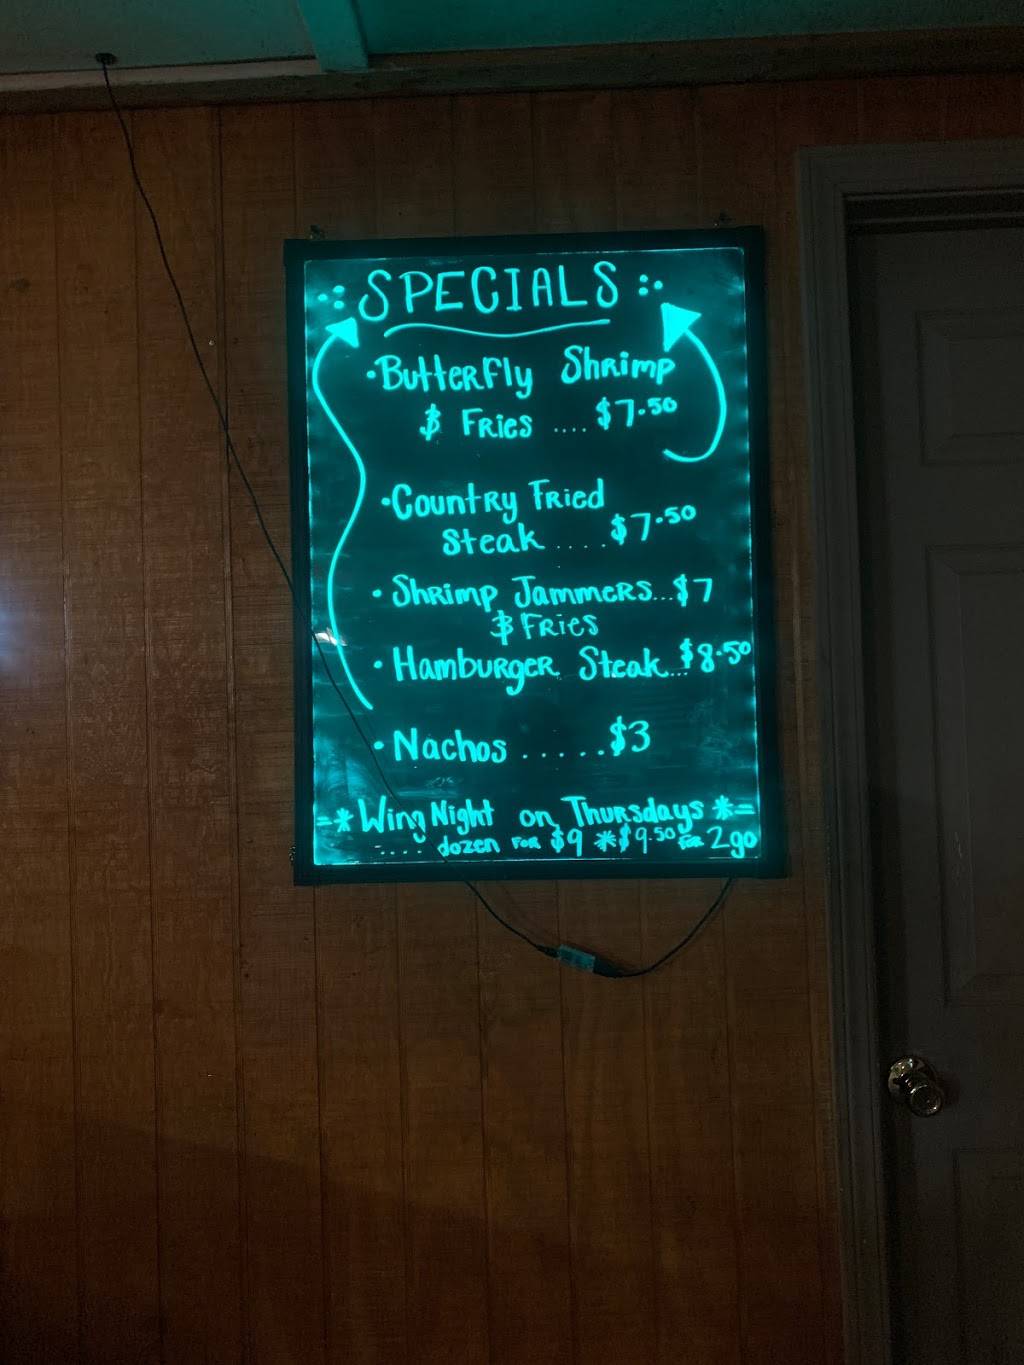 SPECIALS
•Butterfly Shrimp
& Fries .... $7.50
•Country Fried
Steak ....$7.50
• Shrimp Jammers...$7
& Fries
• Hamburger Steak...$8.50
• Nachos .....$3
=* Wing Night on Thursdays *=
.... dozen for $9 *$9.50 for 2go